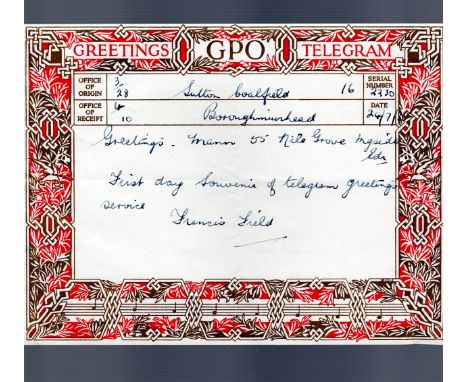 GREETINGS GPO TELEGRAM
OFFICE OF ORIGIN 3/28 Sutton Coalfield 16 SERIAL NUMBER 2320
OFFICE OF RECEIPT 4/10 Boroughmuirhead DATE 24/7/
Greetings - Mann 55 Nile Grove Mgside
Edn
First day Souvenir of telegram greetings
service
Francis Field